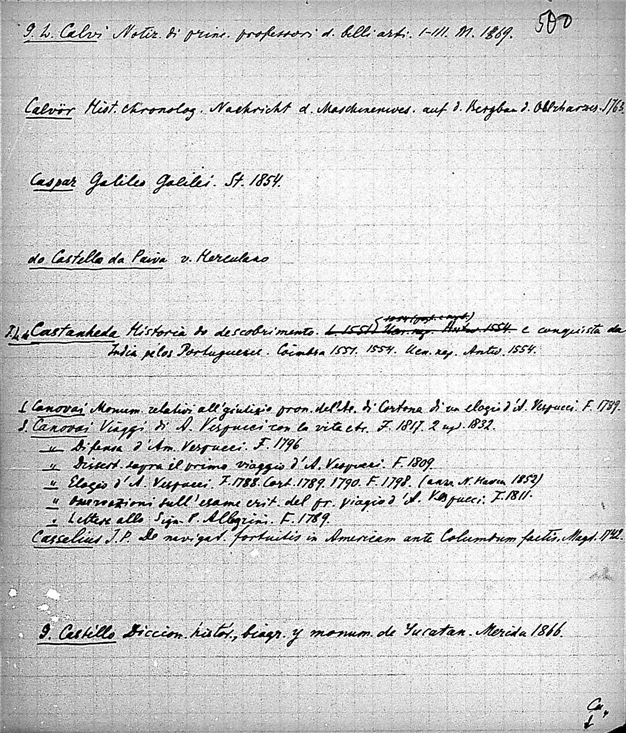 500
G. L. Calvi Notiz. di princ. professori d. belli arti. I-III. M. 1869.
Calvör Hist. chronolog. Nachricht d. Maschinenwes. auf d. Bergbau d. Oberharzes. 1763.
Caspar Galileo Galilei. St. 1854.
do Castello da Paiva v. Herculano
Castanheda Historia do descobrimento. L. 1551 Ucn. nap. Antw. 1554 e conquista da
India pelos Portuguesel. Coimbra 1551. 1554. Ucn. nap. Antw. 1554.
S. Canovai Monum. relativi all'giutizio pron. dell'Ac. di Cortona di un elogio d'A. Vespucci. F. 1789.
S. Canovai Viaggi di A. Vespucci con la vita etc. F. 1817. 2 ed. 1832.
" Difensa d'Am. Vespucci. F. 1796
" Dissert. sopra il primo viaggio d'A. Vespucci. F. 1809.
" Elogio d'A. Vespucci. F. 1788. Cort. 1789. 1790. F. 1798. (N. Haven 1852)
" Osservazioni sull'esame crit. del pr. viagio d'A. Vespucci. F. 1811.
" Lettere allo Sign. P. Allegrini. F. 1789.
Casselius J. P. De navigat. fortuitis in Americam ante Columbum factis. Magd. 1742.
G. Castillo Diccion. histór., biogr. y monum. de Yucatan. Merida 1866.
Ca.
↓